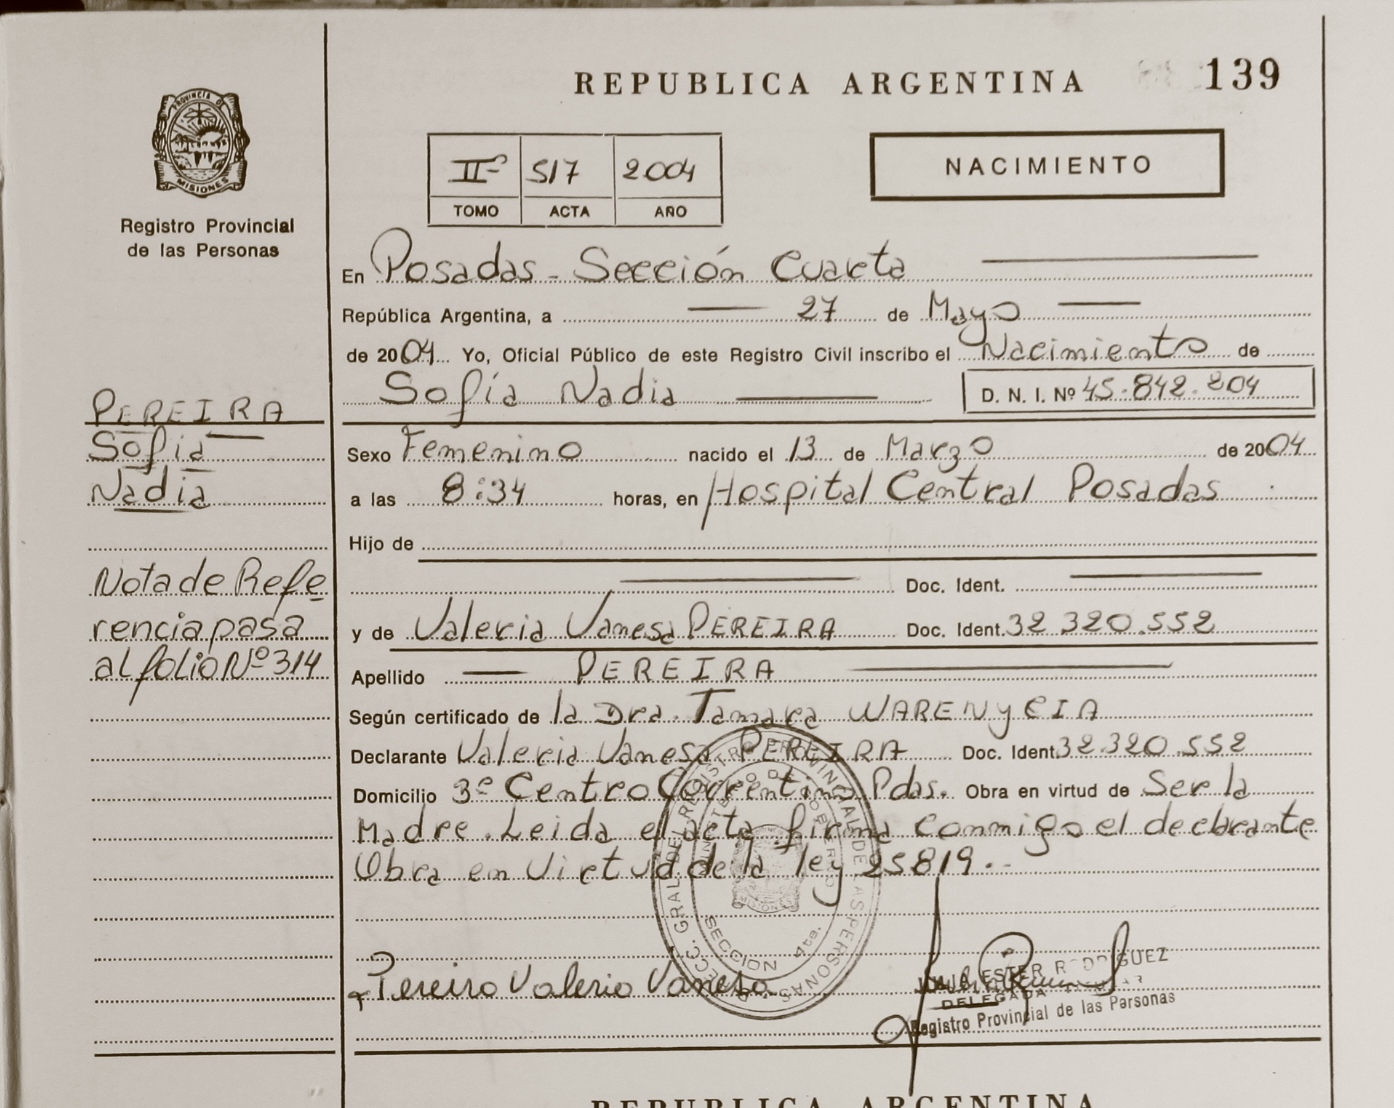 REPUBLICA ARGENTINA 139
PROVINCIA DE
MISIONES
Registro Provincial
de las Personas
IIº 517 2004
TOMO ACTA AÑO
NACIMIENTO
En Posadas - Sección Cuarta
República Argentina, a 27 de Mayo
de 2004 Yo, Oficial Público de este Registro Civil inscribo el Nacimiento de
Sofía Nadia D. N. I. Nº 45.842.204
PEREIRA
Sofia
Nadia
Sexo Femenino nacido el 13 de Marzo de 2004
a las 8:34 horas, en Hospital Central Posadas
Hijo de
Doc. Ident.
Nota de Refe
rencia pasa
al folio Nº 314
y de Valeria Vanesa PEREIRA Doc. Ident. 32 320.552
Apellido PEREIRA
Según certificado de la Dra. Tamara WARENyCIA
Declarante Valeria Vanesa PEREIRA Doc. Ident 32.320.552
Domicilio 3º Centro Correntino Pdas. Obra en virtud de Ser la
Madre. Leida el acta firma conmigo el declarante
Obra en Virtud de la ley 25819.-
SECCION 4ta.
Pereira Valeria Vanesa
ESTER RODRIGUEZ
DELEGADA
Registro Provincial de las Personas
REPUBLICA ARGENTINA